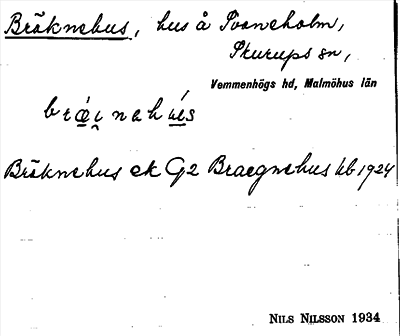 Bräknehus, hus å Svaneholm,
Skurups sn,
Vemmenhögs hd, Malmöhus län
Bräknehus ek G2 Braegnehus kb 1924
NILS NILSSON 1934